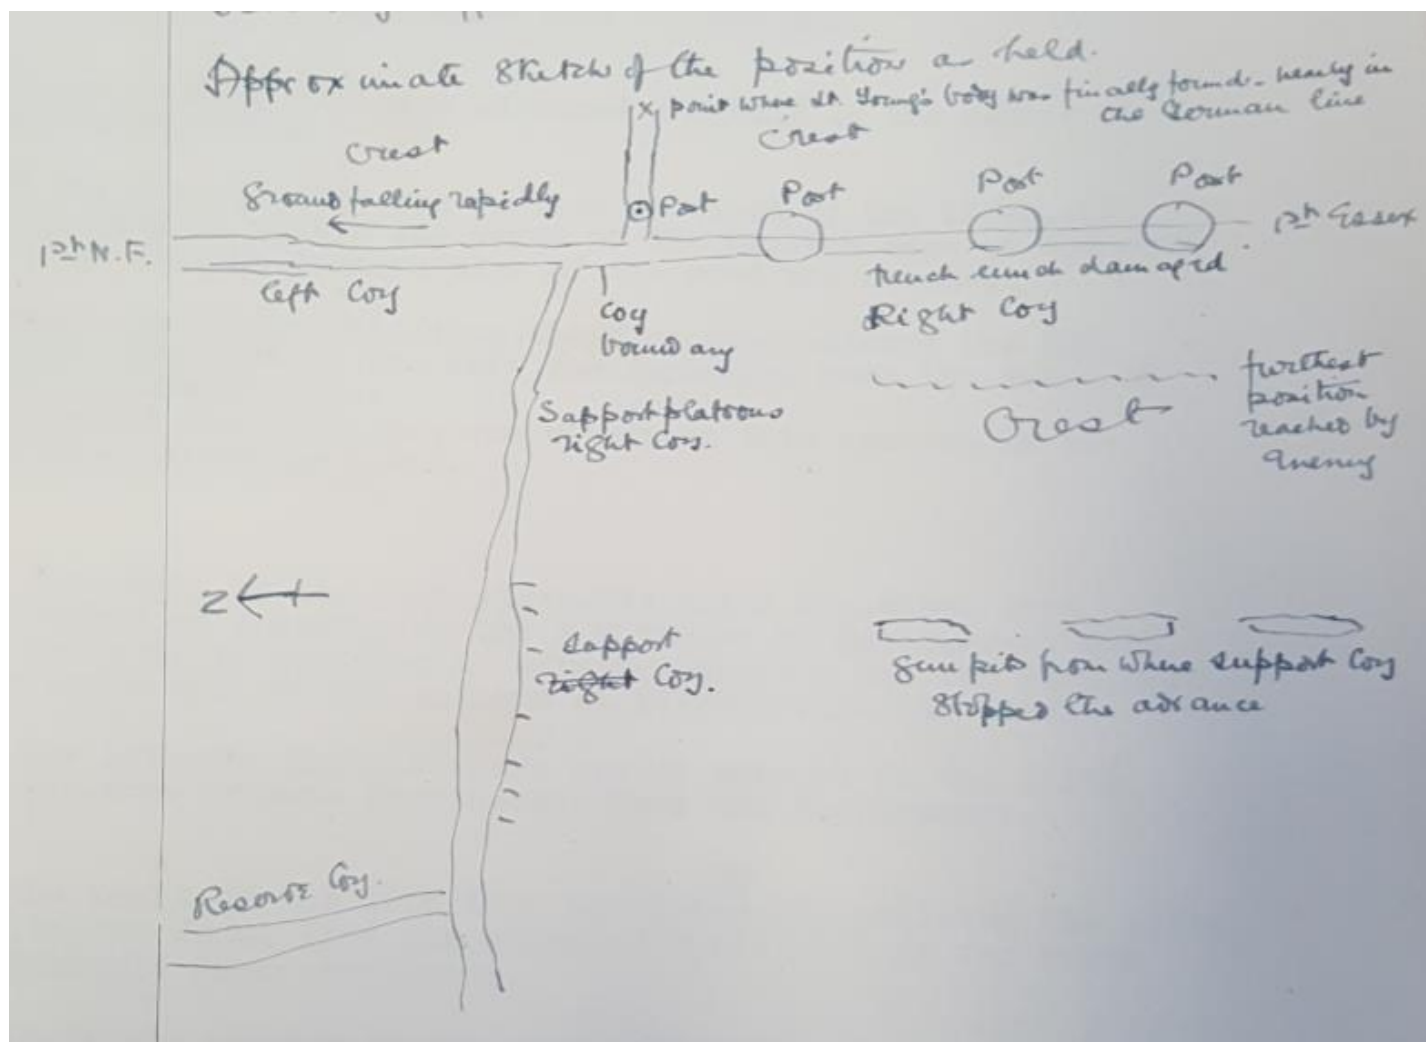 Approximate sketch of the position as held.
x point where Lt Young's body was finally found - nearly in
the German line
Crest
Crest
Ground falling rapidly
Post
Post
Post
Post
1st N.F.
1st Essex
Left Coy
Coy
boundary
trench much damaged
Right Coy
furthest
position
reached by
enemy
Crest
Support platoons
right Coy.
N
Support
right Coy.
gun pits from where support Coy
stopped the advance
Reserve Coy.